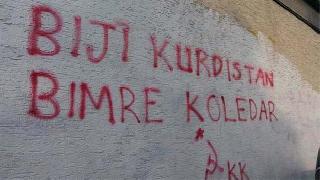 BIJI KURDISTAN
BIMRE KOLEDAR
KK